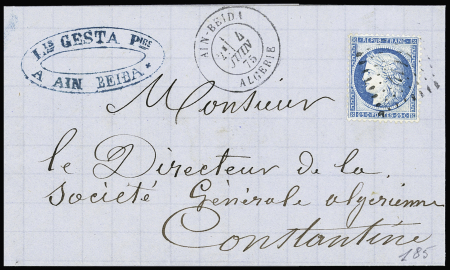 Lis GESTA Pres
A AIN BEIDA
AIN-BEIDA
4
JUIN
75
ALGERIE
REPUB. FRANC.
25 C. POSTES 25 C.
Monsieur
le Directeur de la
Société Générale algérienne
Constantine
185